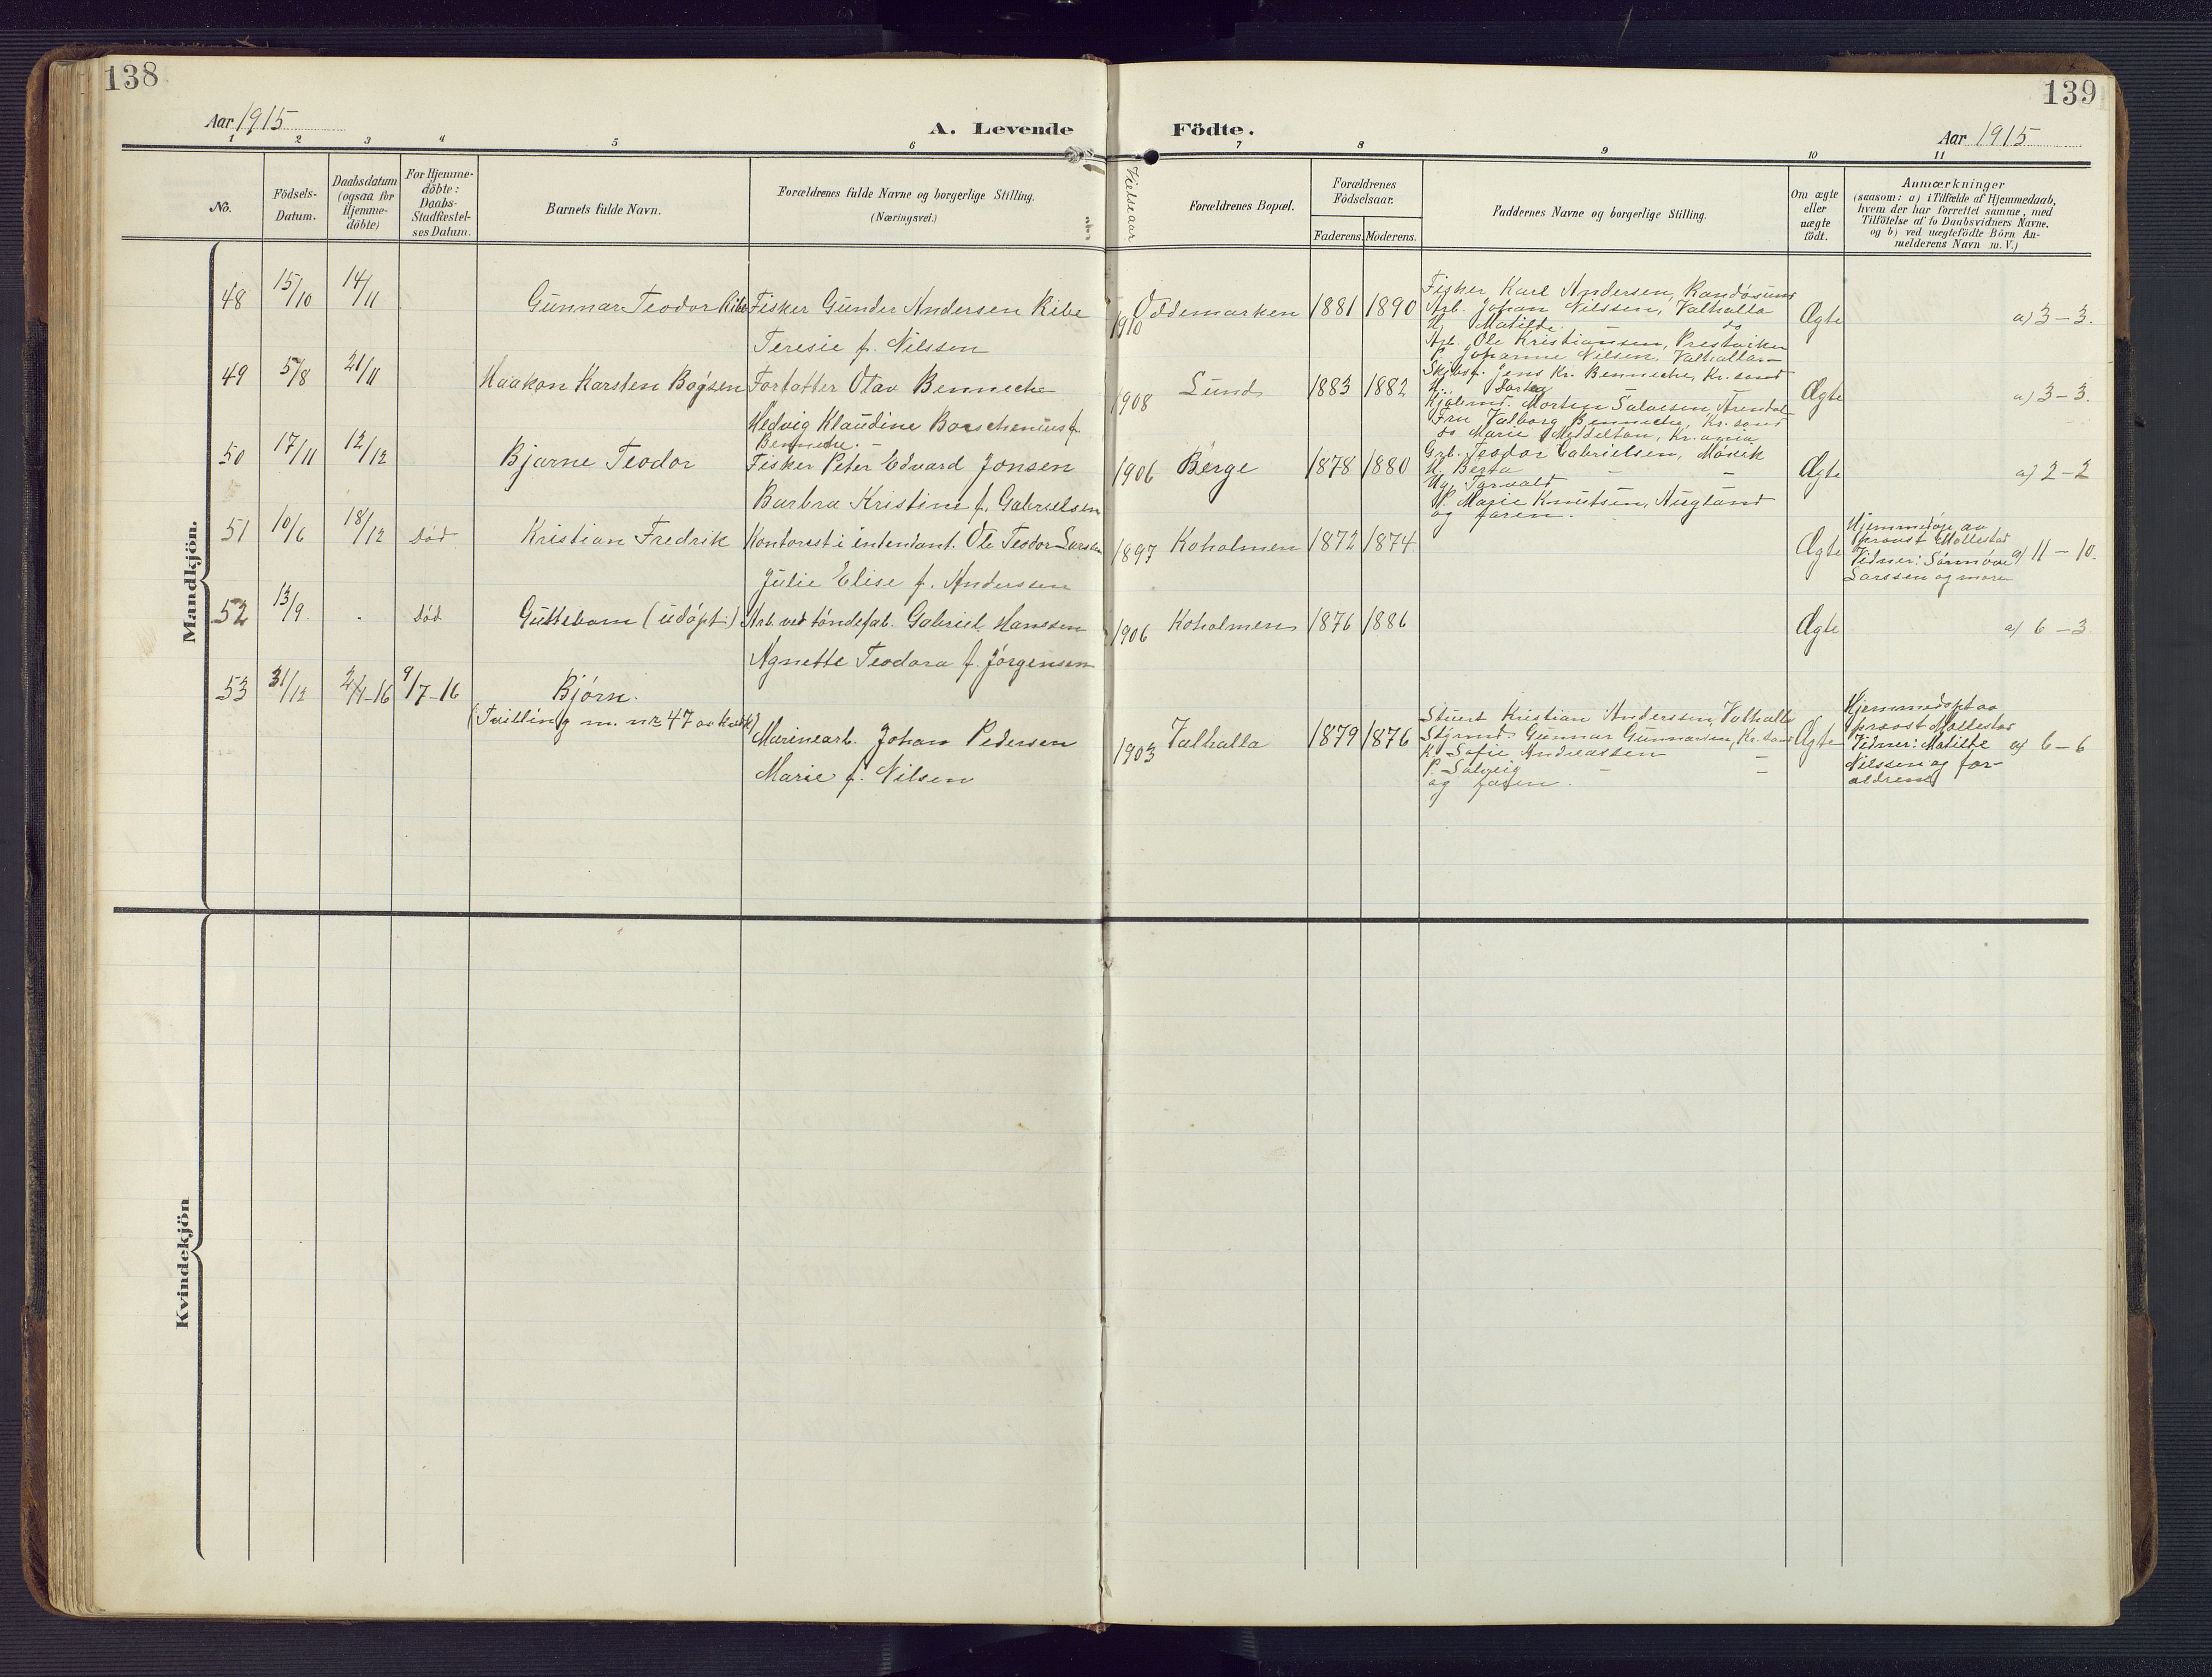 138
139
Aar 1915
A. Levende Födte.
Aar 1915
1 2 3 4 5 6 7 8 9 10 11
No.
Födsels-
Datum.
Daabsdatum
(ogsaa for
Hjemme-
döbte)
For Hjemme-
döbte:
Daabs-
Stadfæstel-
ses Datum.
Barnets fulde Navn.
Forældrenes fulde Navne og borgerlige Stilling.
(Næringsvei.)
Vielsesaar
Forældrenes Bopæl.
Forældrenes
Födselsaar.
Faderens. Moderens.
Faddernes Navne og borgerlige Stilling.
Om ægte
eller
uægte
födt.
Anmærkninger
(saasom: a) i Tilfælde af Hjemmedaab,
hvem der har forrettet samme, med
Tilföielse af to Daabsvidners Navne,
og b) ved uægtefödte Börn An-
melderens Navn m. V.)
Mandkjön.
48 15/10 14/11 Gunnar Teodor Ribe Fisker Gunder Andersen Ribe
Teresie f. Nilssen
1910 Oddemarken 1881 1890
Fisker Karl Andersen, Randøsund
Arb. Johan Nilssen, Valhalla
H. Matilde do
Arb. Ole Kristiansen, Prestviken
P. Johanne Nilsen, Valhalla
Ægte a) 3-3.
49 5/8 21/11 Haakon Karsten Bogsen Forfatter Otav Benneche
Hedvig Klaudine Borschenius f.
Benneche.
1908 Lund 1883 1882
Skibsf. Jens Kr. Benneche, Kr.sand
Kjøbmd. Morten Salvesen, Arendal
Fru Valborg Benneche, Kr.sand
do Marie Middelton, Kr.ania
Ægte a) 3-3.
50 17/11 12/12 Bjarne Teodor Fisker Peter Edvard Jonsen
Barbra Kristine f. Gabrielsen
1906 Berge 1878 1880
Grb. Teodor Gabrielsen, Møvik
H. Berta
Ug. Torvald
P. Marie Knutsen, Augland
og faren.
Ægte a) 2-2
51 10/6 18/12 Død Kristian Fredrik Kontorist i intendant. Ole Teodor Larsen
Julie Elise f. Anderssen
1897 Koholmen 1872 1874
Ægte
Hjemmedøp. av
provst Mollestad
Vidner: Sørmøve
Larssen og moren
a) 11-10.
52 13/9 . Død Guttebarn (udøpt) Arb. ved tøndefab. Gabriel Hanssen
Agnette Teodora f. Jørgensen
1906 Koholmen 1876 1886 Ægte a) 6-3
53 31/12 2/1-16 9/7-16 Bjørn.
(Tvilling m. nr 47 av kvk)
Marinearb. Johan Pedersen
Marie f. Nilsen
1903 Valhalla 1879 1876
Stuert Kristian Anderssen, Valhalla
Styrmd. Gunnar Gunnarsen, Kr.sand
H. Sofie Andreassen
P. Solveig
og faren.
Ægte
Hjemmedøpt av
provst Mollestad
Vidner: Matilde
Nilssen og for-
ældrene
a) 6-6
Kvindekjön